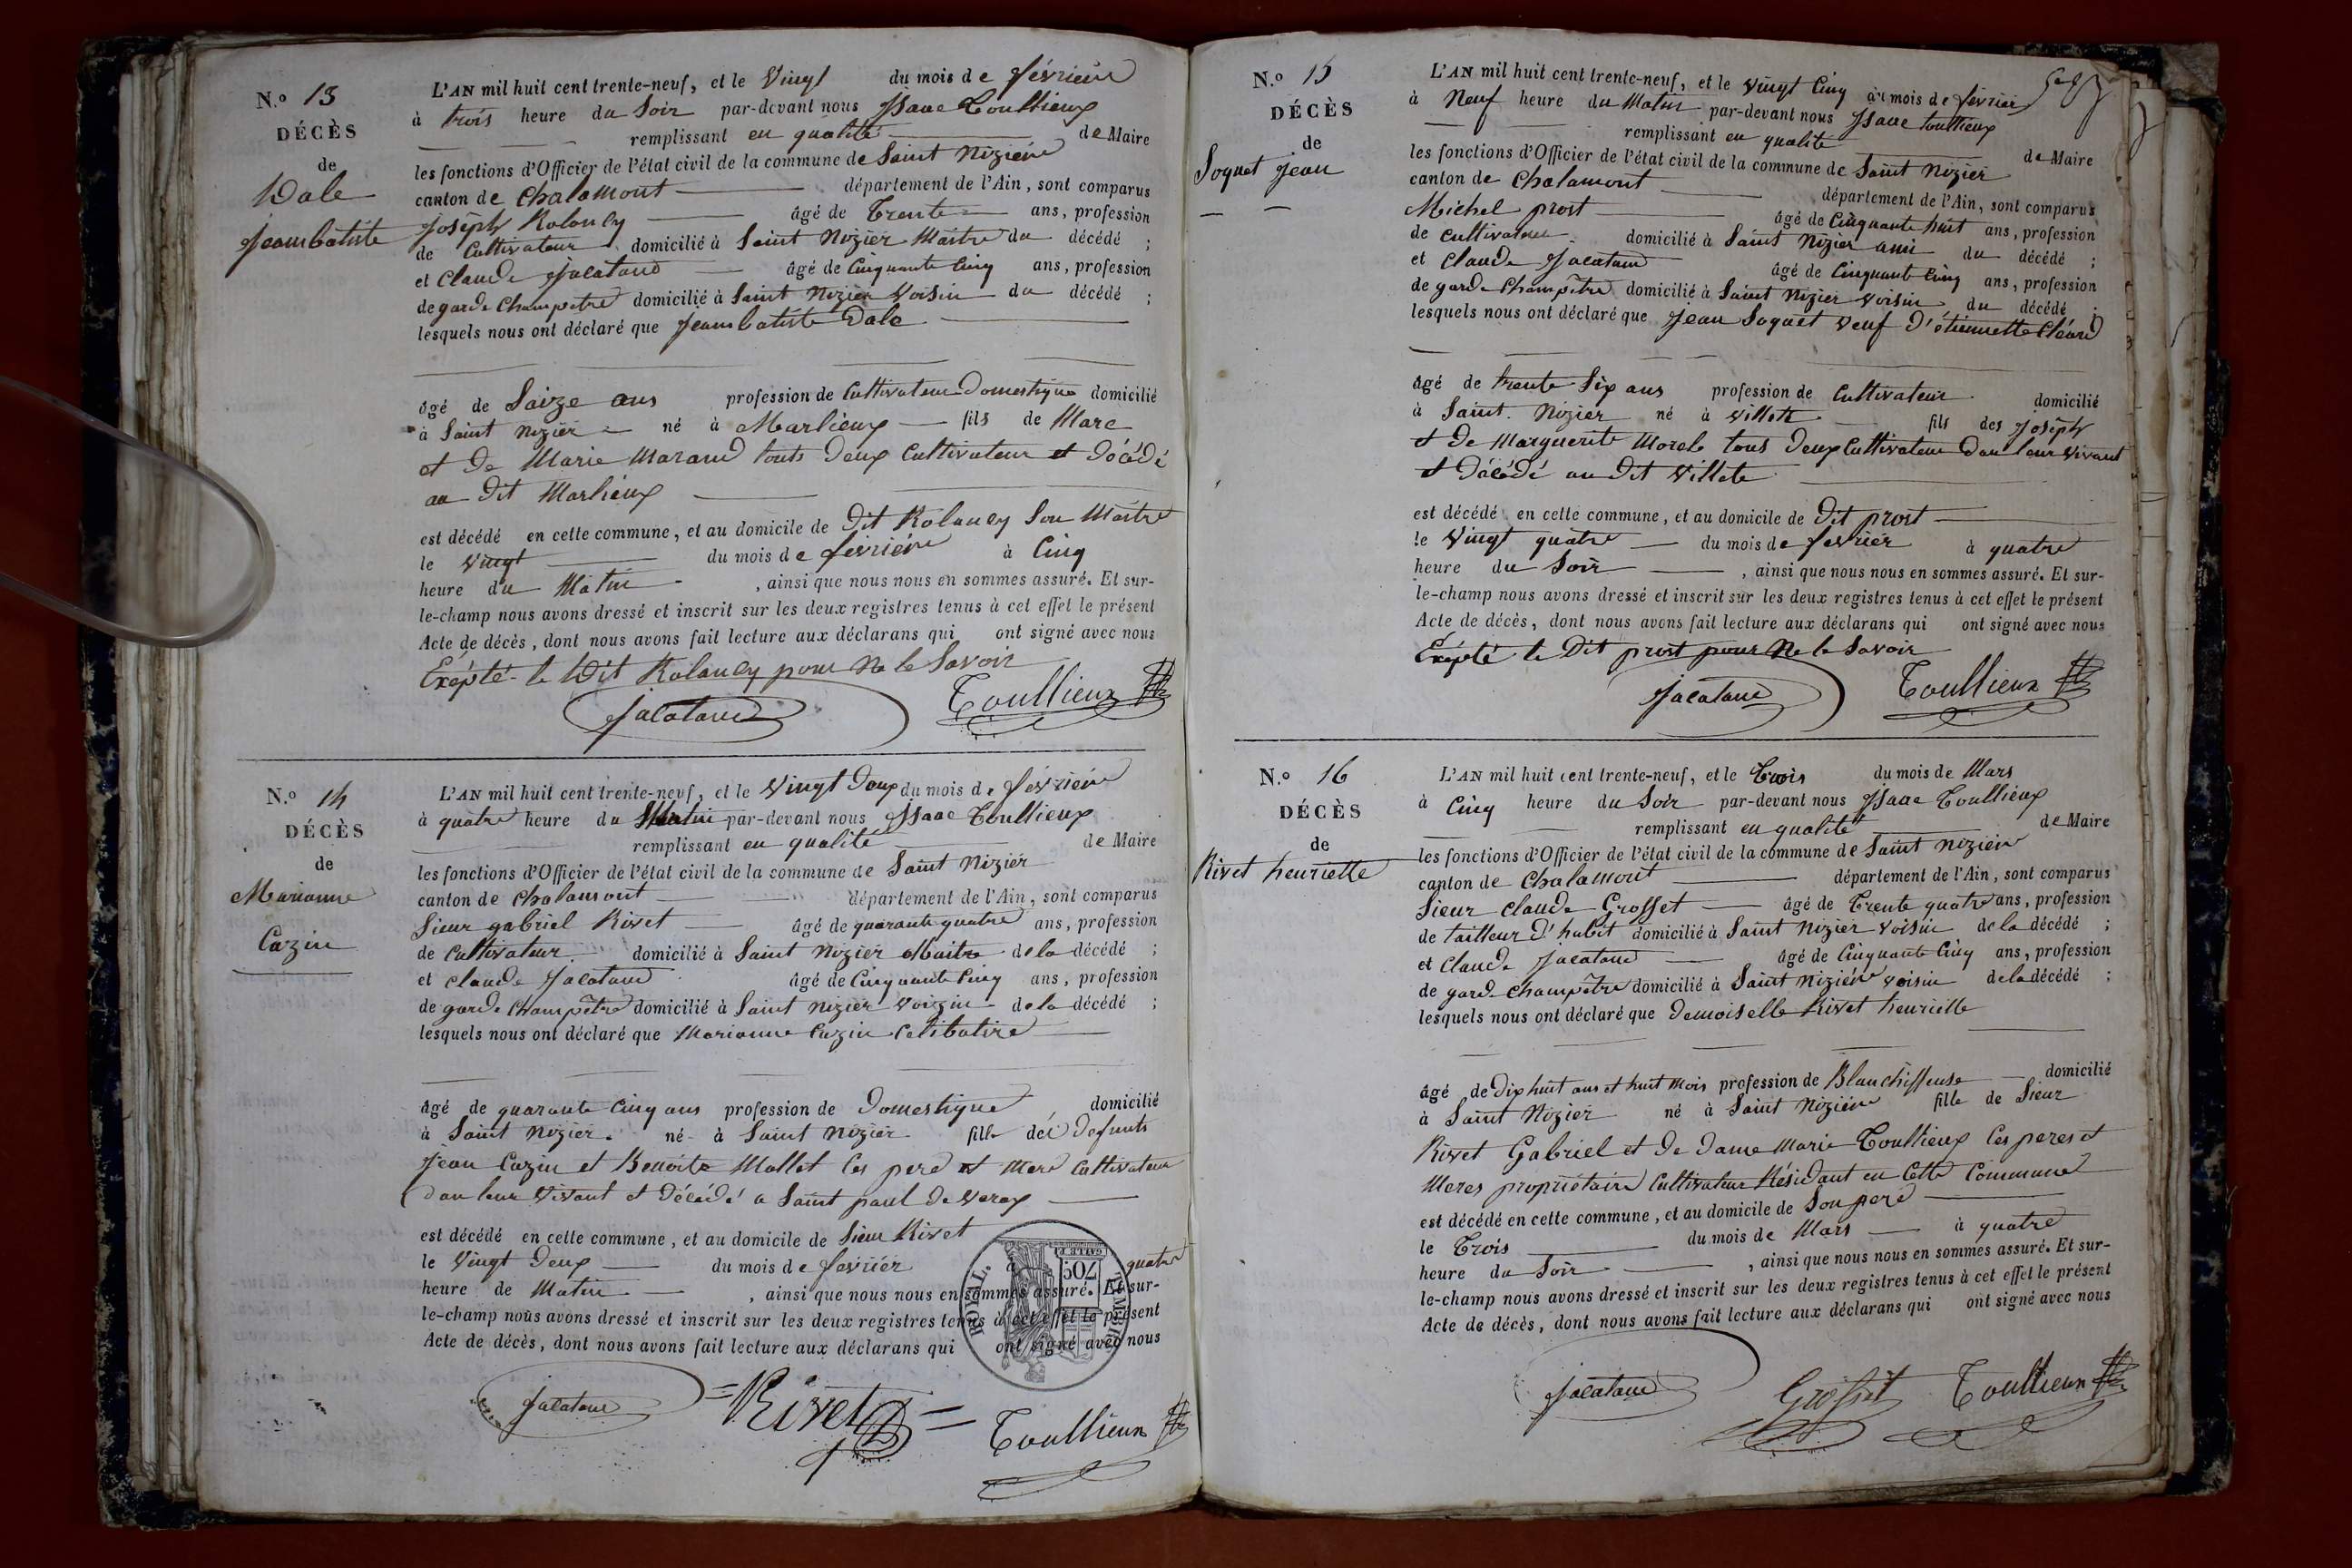 N.º 13
DÉCÈS
de
Dale
Jeanbatiste
L'AN mil huit cent trente-neuf, et le Vingt du mois de février
à trois heure du Soir par-devant nous Isaac Toullieux
remplissant en qualité de Maire
les fonctions d'Officier de l'état civil de la commune de Saint Nizier
canton de Chalamont département de l'Ain, sont comparus
Joseph âgé de Trente ans, profession
de Cultivateur domicilié à Saint Nizier Maître du décédé ;
et Claude Jacataud âgé de Cinquante Cinq ans, profession
de garde Champetre domicilié à Saint Nizier Voisin du décédé ;
lesquels nous ont déclaré que Jeanbatiste Dale
âgé de Saize ans profession de Cultivateur Domestique domicilié
à Saint Nizier né à Marlieux fils de Marc
et de Marie Maraud touts deux Cultivateur et décédé
au dit Marlieux
est décédé en cette commune, et au domicile de dit Rolancy Son Maître
le Vingt du mois de février à Cinq
heure du Matin , ainsi que nous nous en sommes assuré. Et sur-
le-champ nous avons dressé et inscrit sur les deux registres tenus à cet effet le présent
Acte de décès, dont nous avons fait lecture aux déclarans qui ont signé avec nous
Exépté le Dit Rolancy pour Ne le Savoir
Jacataud Toullieux
N.º 14
DÉCÈS
de
Marianne
Cazin
L'AN mil huit cent trente-neuf, et le Vingt Deux du mois de février
à quatre heure du Matin par-devant nous Isaac Toullieux
remplissant en qualité de Maire
les fonctions d'Officier de l'état civil de la commune de Saint Nizier
canton de Chalamont département de l'Ain, sont comparus
Sieur gabriel Rivet âgé de quarante quatre ans, profession
de Cultivateur domicilié à Saint Nizier Maitre de la décédé ;
et Claude Jacataud âgé de Cinquante Cinq ans, profession
de garde Champêtre domicilié à Saint Nizier Voizin de la décédé ;
lesquels nous ont déclaré que Marianne Cazin Celibatire
âgé de quarante Cinq ans profession de Domestique domicilié
à Saint Nizier né à Saint Nizier fille des Defunts
Jean Cazin et Benoite Mallet Ces pere et Mere Cultivateur
dan leur Vivant et décédé a Saint paul de Varax
est décédé en cette commune, et au domicile de Sieur Rivet
le Vingt Deux du mois de février à quatre
heure de Matin , ainsi que nous nous en sommes assuré. Et sur-
le-champ nous avons dressé et inscrit sur les deux registres tenus à cet effet le présent
Acte de décès, dont nous avons fait lecture aux déclarans qui ont signé avec nous
Jacataud Rivet Toullieux
TIMBRE ROYAL
70c
N.º 15
DÉCÈS
de
Soquet Jean
L'AN mil huit cent trente-neuf, et le Vingt Cinq du mois de février
à Neuf heure du Matin par-devant nous Isaac Toullieux
remplissant en qualité de Maire
les fonctions d'Officier de l'état civil de la commune de Saint Nizier
canton de Chalamont département de l'Ain, sont comparus
Michel prost âgé de Cinquante huit ans, profession
de cultivateur domicilié à Saint Nizier ami du décédé ;
et Claude Jacataud âgé de Cinquante Cinq ans, profession
de garde Champêtre domicilié à Saint Nizier Voisin du décédé ;
lesquels nous ont déclaré que Jean Soquet Veuf d'étiennette Cléard
âgé de trente Six ans profession de Cultivateur domicilié
à Saint Nizier né à Villete fils des Joseph
et de Marguerite Morele tous deux Cultivateur Dan leur Vivant
et Décédé au dit Villete
est décédé en cette commune, et au domicile de Dit prost
le Vingt quatre du mois de fevrier à quatre
heure du Soir , ainsi que nous nous en sommes assuré. Et sur-
le-champ nous avons dressé et inscrit sur les deux registres tenus à cet effet le présent
Acte de décès, dont nous avons fait lecture aux déclarans qui ont signé avec nous
Exépté le Dit prost pour Ne le Savoir
Jacataud Toullieux
N.º 16
DÉCÈS
de
Rivet henriette
L'AN mil huit cent trente-neuf, et le Trois du mois de Mars
à Cinq heure du Soir par-devant nous Isaac Toullieux
remplissant en qualité de Maire
les fonctions d'Officier de l'état civil de la commune de Saint Nizier
canton de Chalamont département de l'Ain, sont comparus
Sieur Claude Grosset âgé de Trente quatre ans, profession
de tailleur d'habit domicilié à Saint Nizier Voisin de la décédé ;
et Claude Jacataud âgé de Cinquante Cinq ans, profession
de garde champêtre domicilié à Saint Nizier voisin de la décédé ;
lesquels nous ont déclaré que demoiselle Rivet henriette
âgé de Dix huit ans et huit Mois profession de Blanchisseuse domicilié
à Saint Nizier né à Saint Nizier fille de Sieur
Rivet Gabriel et de Dame Marie Toullieux Ces peres et
Meres propriétaire Cultivateur Résidant en Cette Commune
est décédé en cette commune, et au domicile de Son pere
le Trois du mois de Mars à quatre
heure du Soir , ainsi que nous nous en sommes assuré. Et sur-
le-champ nous avons dressé et inscrit sur les deux registres tenus à cet effet le présent
Acte de décès, dont nous avons fait lecture aux déclarans qui ont signé avec nous
Jacataud Grosset Toullieux